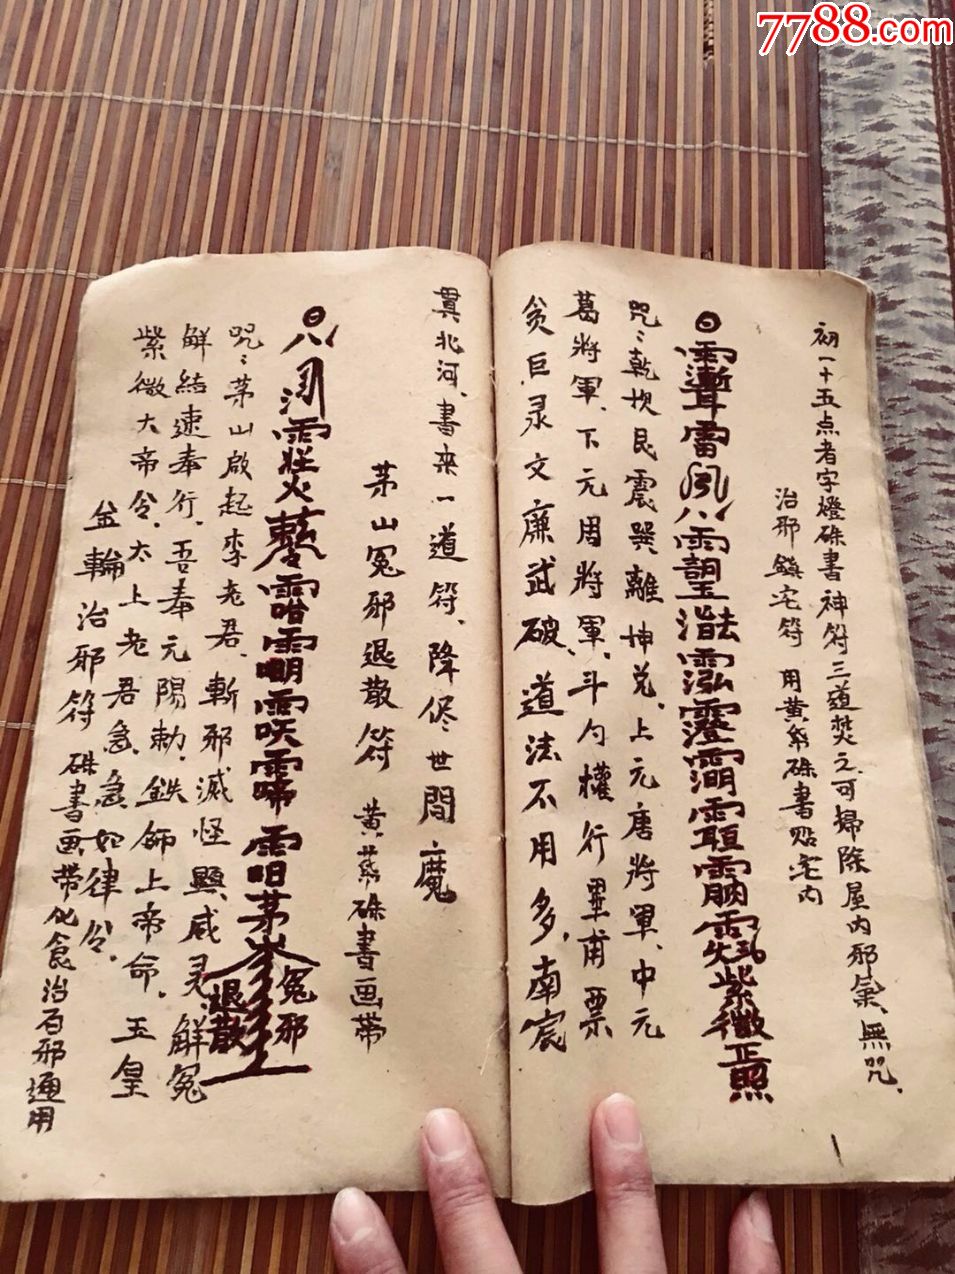 7788.com
初一十五点者字燈硃書神符三道焚之可掃除屋内邪氣、無咒、
治邪鎮宅符 用黄紙硃書貼宅内
雷 紫微正照
咒:乾坎艮震巽離坤兑、上元唐將軍、中元
葛將軍、下元周將軍、斗勺權行畢甫票
贪巨录文廉武破、道法不用多、南宸
貫北河、書来一道符、降伏世間魔
茅山冤邪退散符 黄紙硃書画帶
冤邪退散
咒:茅山啟起李老君、斬邪滅怪顯威灵、解冤
解結速奉行、吾奉元陽勅、鉄師上帝命、玉皇
紫微大帝令、太上老君急急如律令、
金輪治邪符 硃書画帶化食治百邪通用